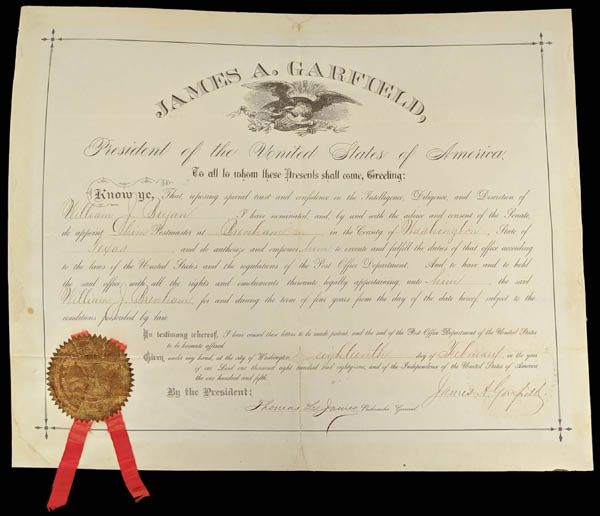 JAMES A. GARFIELD,
President of the United States of America,
To all to whom these Presents shall come, Greeting:
Know ye, That, reposing special trust and confidence in the Intelligence, Diligence, and Discretion of
William J. Bryan I have nominated, and, by and with the advice and consent of the Senate,
do appoint him Postmaster at Brenham in the County of Washington, State of
Texas and do authorize and empower him to execute and fulfill the duties of that office according
to the laws of the United States and the regulations of the Post Office Department. And to have and to hold
the said office, with all the rights and emoluments thereunto legally appertaining unto him the said
William J. Brenham for and during the term of four years from the day of the date hereof, subject to the
conditions prescribed by law
In testimony whereof, I have caused these letters to be made patent, and the seal of the Post Office Department of the United States
to be hereunto affixed.
Given under my hand, at the city of Washington, eighteenth day of February in the year
of our Lord one thousand eight hundred and eighty-one, and of the Independence of the United States of America
the one hundred and fifth.
By the President: James A. Garfield
Thomas L. James Postmaster General.